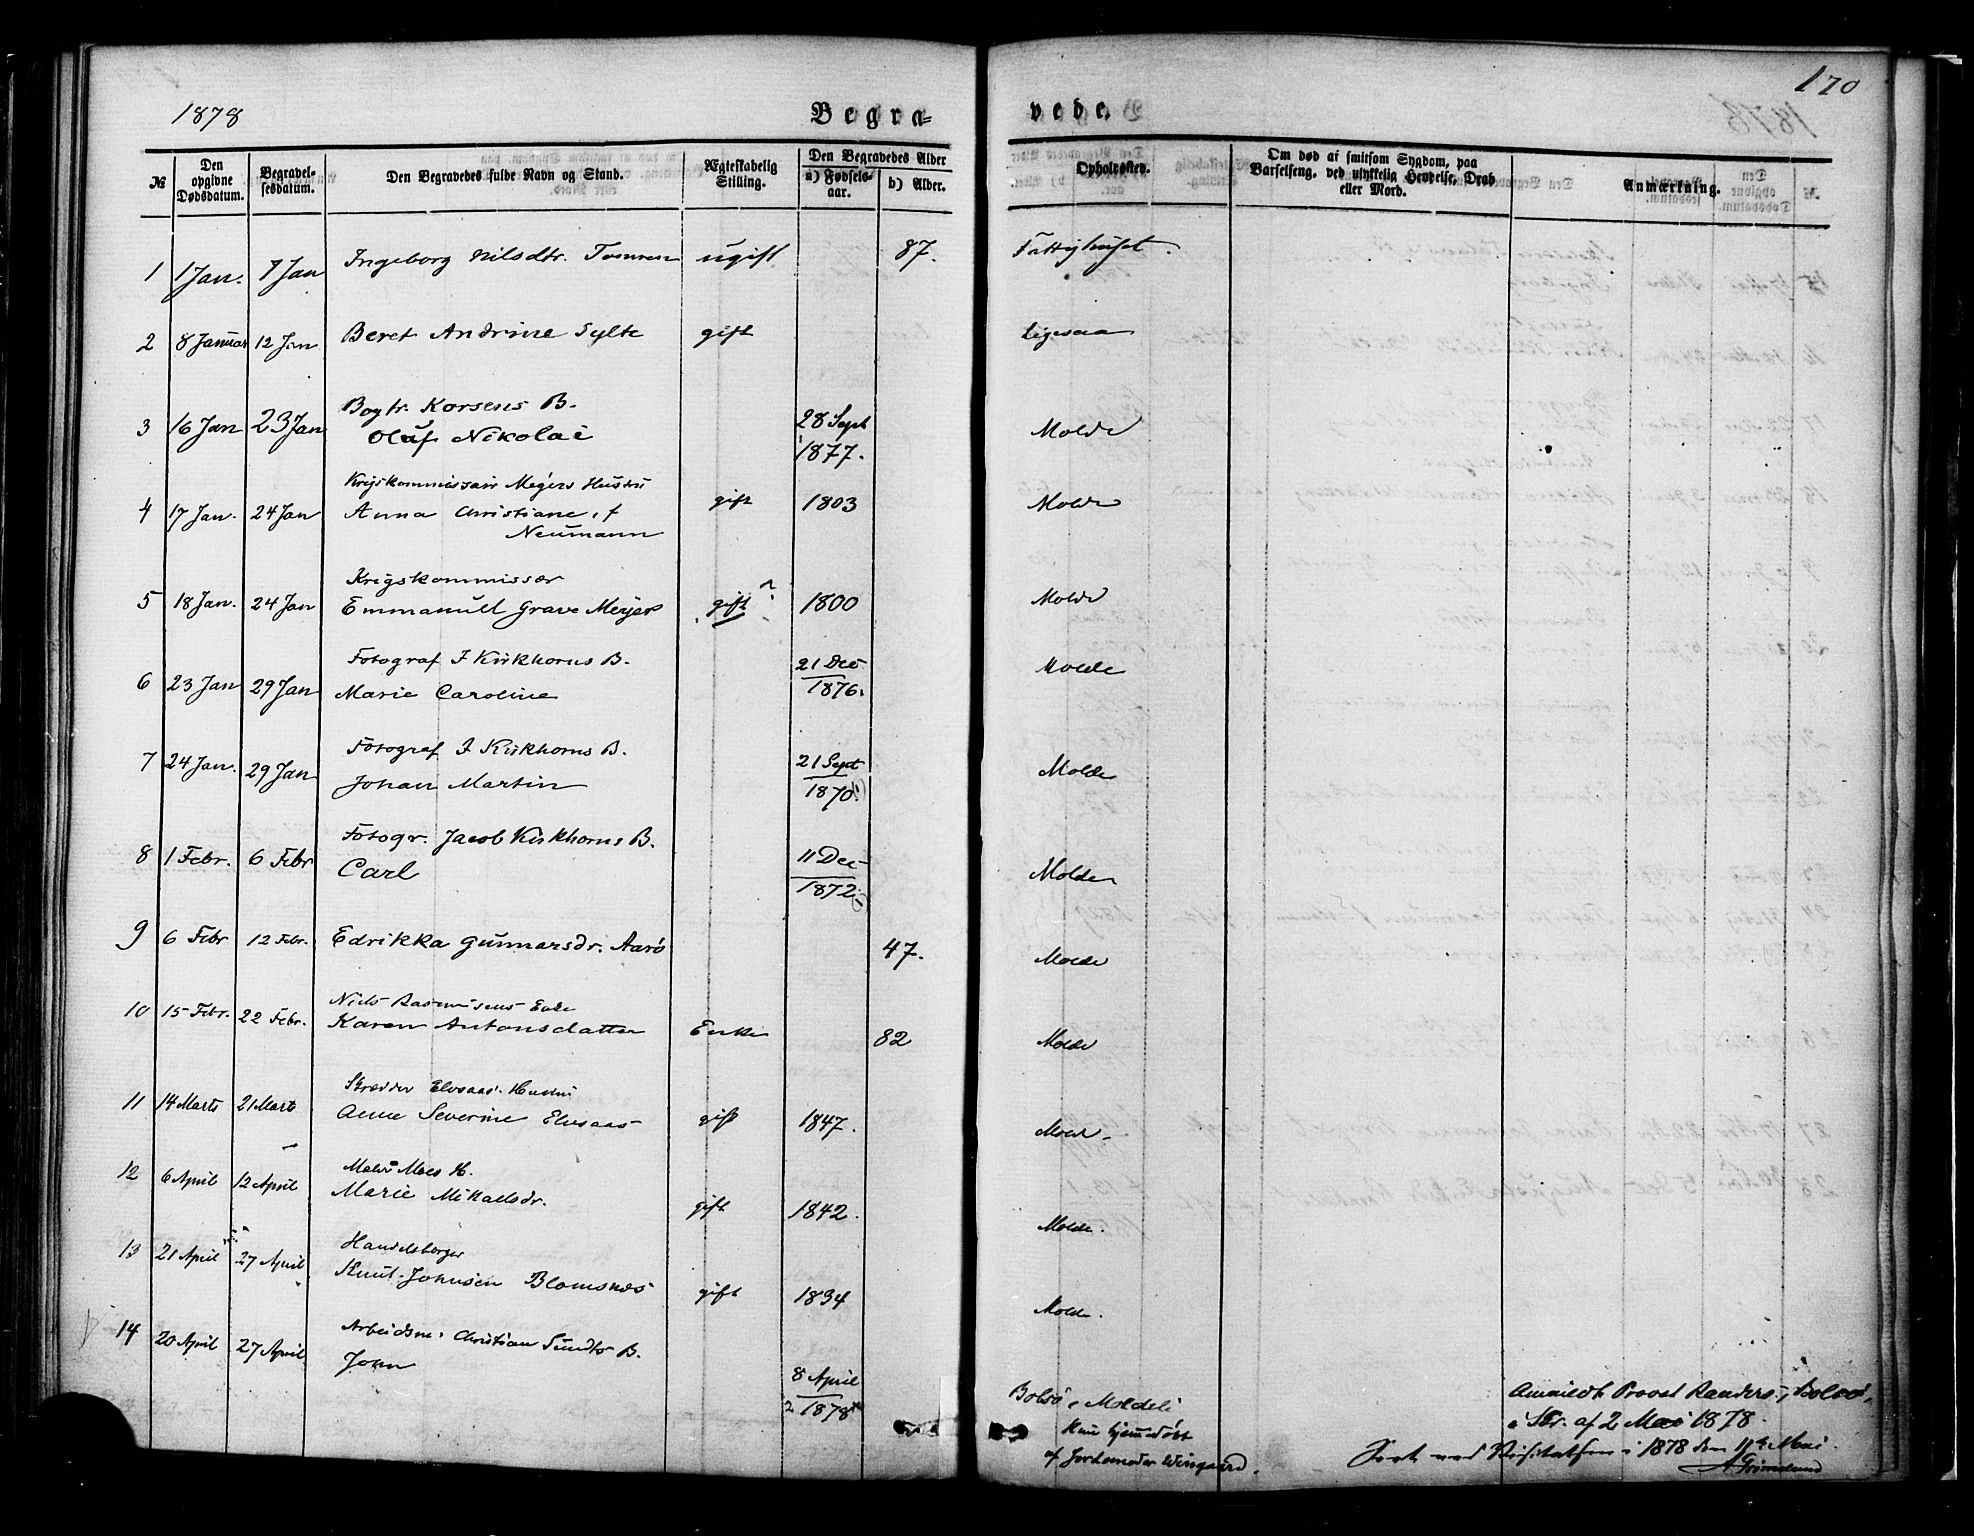 1878
Begra-
vede.
170
№
Den opgivne Dødsdatum.
Begravel-sesdatum.
Den Begravedes fulde Navn og Stand.
Ægteskabelig Stilling.
Den Begravedes Alder
a) Fødsels-aar.
b) Alder.
Opholdssted.
Om død af smitsom Sygdom, paa Barselseng, ved ulykkelig Hendelse, Drab eller Mord.
Anmærkning.
1 1 Jan. 7 Jan Ingeborg Nilsdtr. Tomren ugift 87. Fattighuset.
2 8 Januar 12 Jan Beret Andrine Sylte gift Ligesaa
Bogtr. Korsens B.
3 16 Jan 23 Jan Oluf Nikolai 28 Sept 1877. Molde
Krigskommissair Meyers Hustru
4 17 Jan. 24 Jan Anna Christiane, f gift 1803 Molde
Neumann
Krigskommissær
5 18 Jan. 24 Jan Emmanuell Grave Meyer gift ? 1800 Molde
Fotograf J Kirkhorns B.
6 23 Jan 29 Jan Marie Caroline 21 Dec 1876. Molde
Fotograf J Kirkhorns B.
7 24 Jan. 29 Jan Johan Martin 21 Sept 1870 Molde
Fotogr. Jacob Kirkhorns B.
8 1 Febr. 6 Febr Carl 11 Dec 1872 Molde
9 6 Febr 12 Febr. Edrikka Gunnarsdr. Aarø 47. Molde
Niels Rasmusens Enke
10 15 Febr. 22 Febr. Karen Antonsdatter Enke 82 Molde
Skrædder Elvsaas' Hustru
11 14 Marts 21 Marts Anne Severine Elvsaas gift 1847. Molde
Moes H.
12 6 April 12 April Marie Mikaelsdr. gift 1842. Molde.
Handelsborger
13 21 April 27 April Knut Johnsen Blomsnes gift 1834 Molde.
Arbeidsm. Christian Sundts B.
14 20 April 27 April John 8 April 1878
Bolsø, Moldeli
kun hjemmedøbt
af Jordemoder Wingaard.
Anmeldt Provst Randers, Bolsø,
i Skr. af 2 Mai 1878.
Visitatsen i 1878 den 11te Mai.
A Grimelund